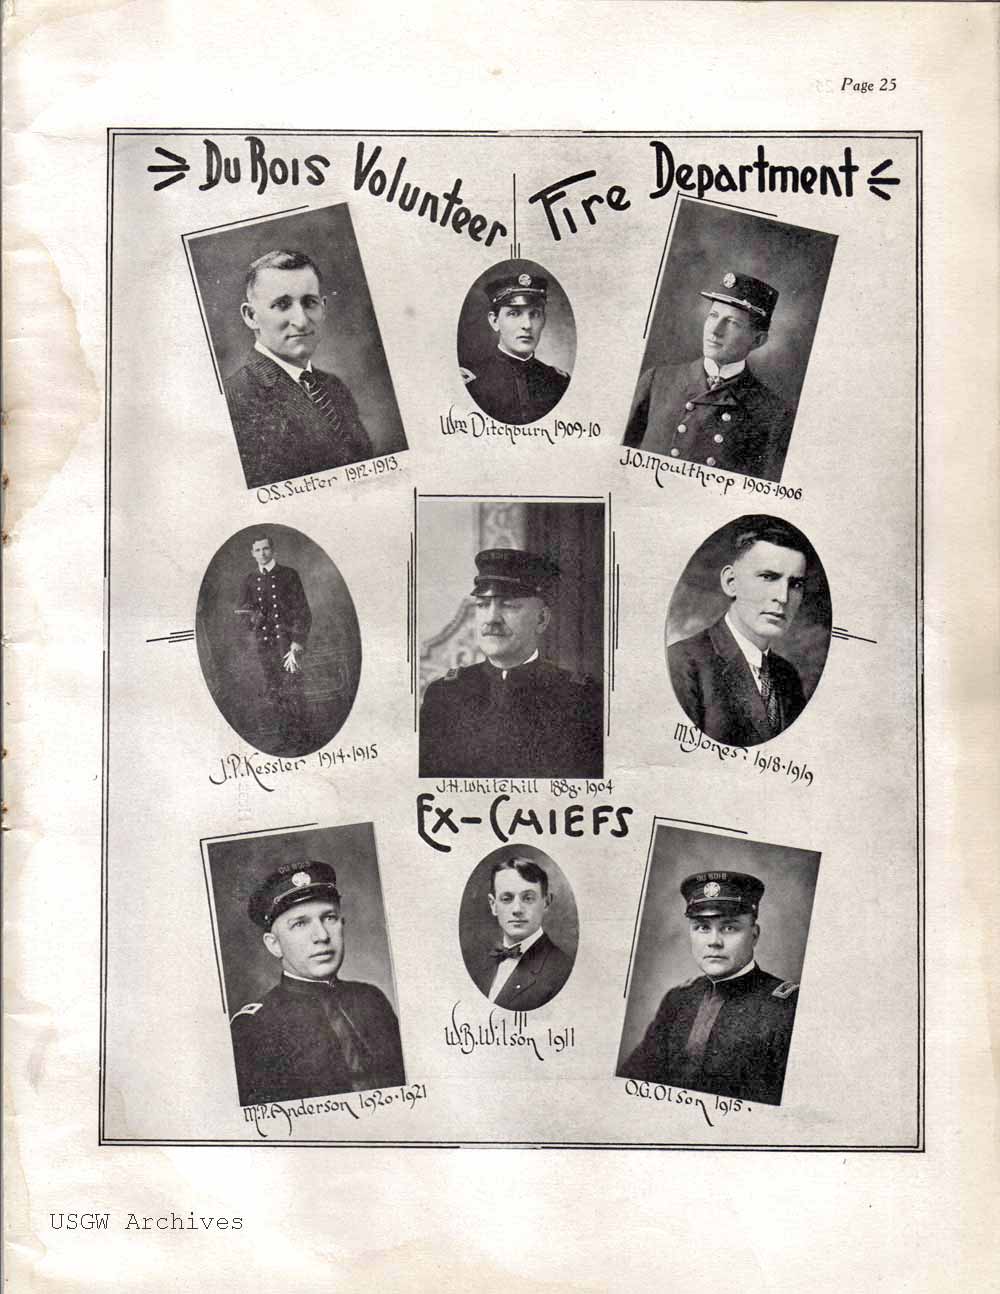 Page 25
DuBois Volunteer Fire Department
O.S. Sutter 1912-1913.
Wm Ditchburn 1909-10
J.O. Moulthrop 1905-1906
J.P. Kessler 1914-1915
J.H. Whitehill 1888-1904
M.S. Jones. 1918-1919
EX-CHIEFS
DU BOIS
DU BOIS
M.P. Anderson 1920-1921
W.B. Wilson 1911
O.G. Olson 1915.
USGW Archives